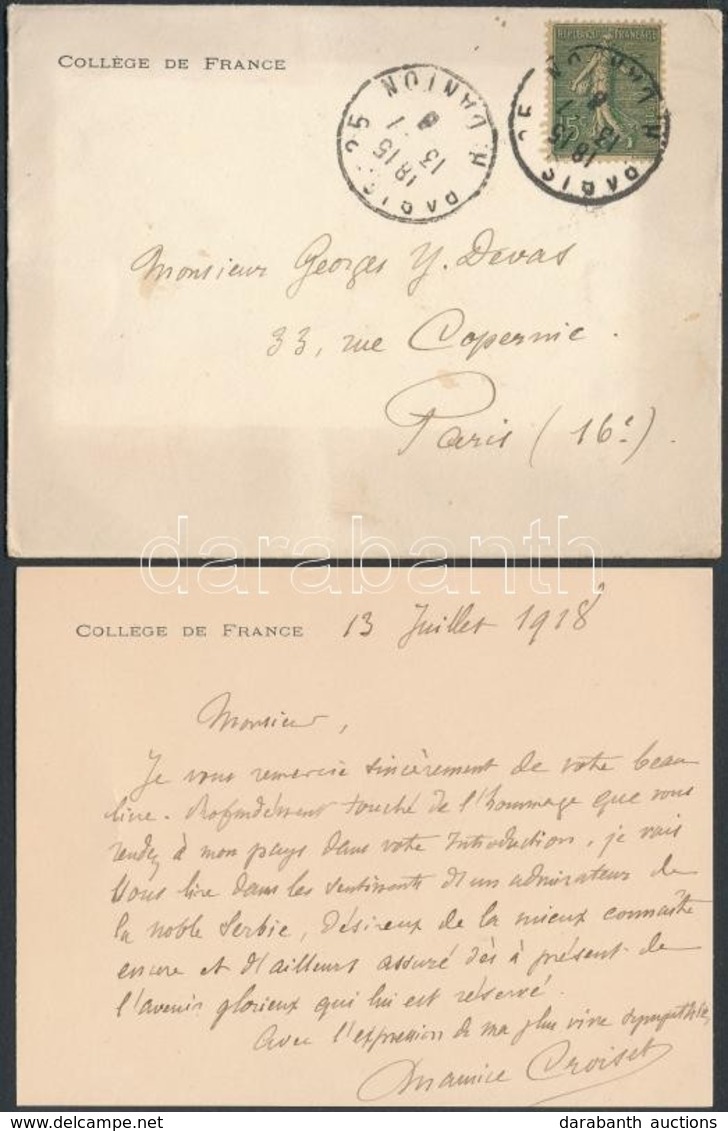 COLLÈGE DE FRANCE
RÉPUBLIQUE FRANÇAISE
15c
PARIS 25
R. DANTON
18 15
13 7
8
Monsieur Georges Y. Devas
33, rue Copernic.
Paris (16e).
darabanth
COLLÈGE DE FRANCE 13 Juillet 1918
Monsieur,
Je vous remercie sincèrement de votre beau
livre. Profondément touché de l'hommage que vous
rendez à mon pays dans votre Introduction, je vais
vous lire dans les sentiments d'un admirateur de
la noble Serbie, désireux de la mieux connaître
encore et d'ailleurs assuré dès à présent de
l'avenir glorieux qui lui est réservé.
Avec l'expression de ma plus vive sympathie,
Maurice Croiset
darabanth auctions